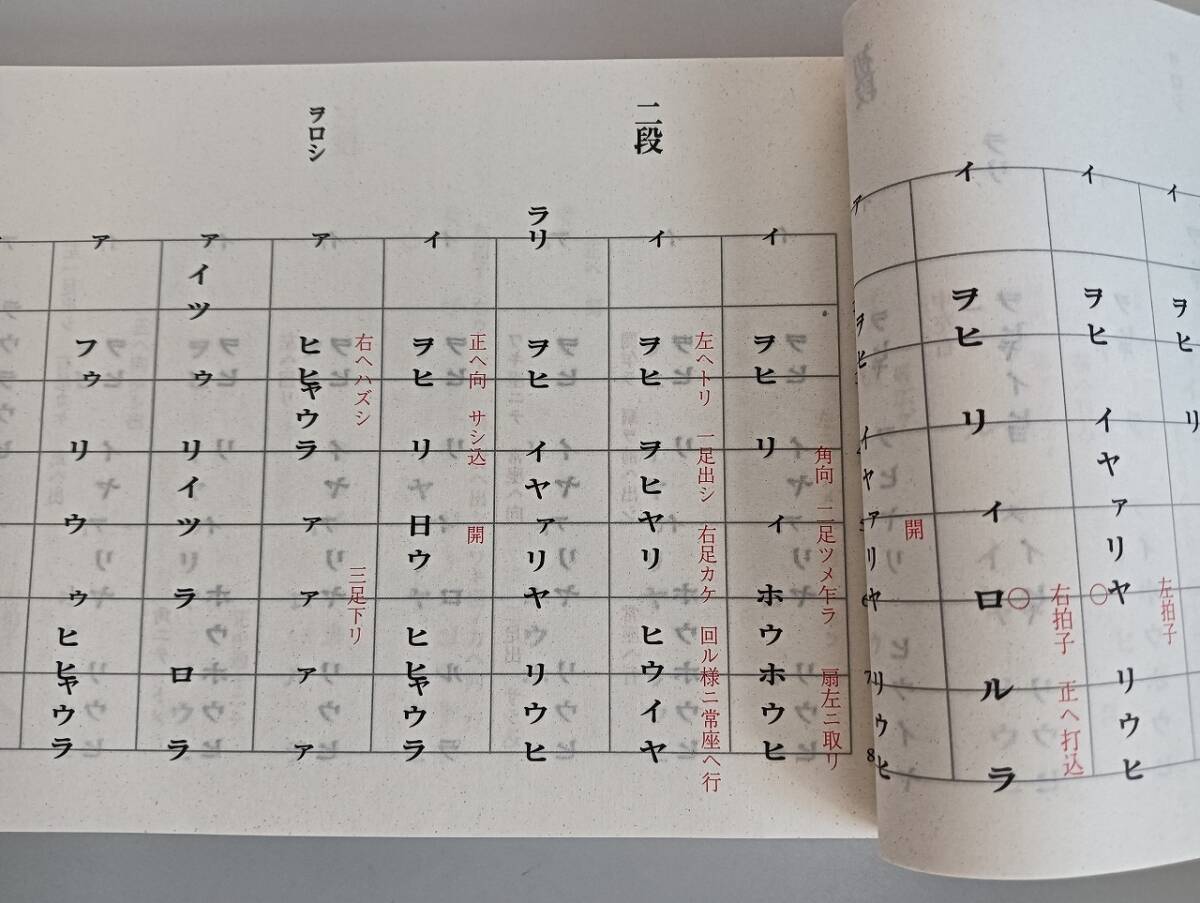 イ
ヲヒ
リ
イ
ヤ
ァ
リ
ヤ
リウヒ
左拍子
イ
ヲヒ
リ
イ
ロ
ル
ラ
右拍子 正へ打込
開
二段
イ
ヲヒ
リ
イ
ホウホウヒ
角向 二足ツメ乍ラ 扇左ニ取リ
イ
ヲヒ
ヲヒヤリ
ヒウイヤ
左へトリ 一足出シ 右足カケ 回ル様ニ常座へ行
ラリ
ヲヒ
イヤァリヤ
リウヒ
イ
ヲヒ
リ
日ウ
ヒヒャウラ
正へ向 サシ込 開
ヲロシ
ア
ヒヒャウラ
ァ
ァ
ァ
ァ
右へハズシ 三足下リ
ア
イツゥ
リイツラ
ロラ
ア
フゥ
リ
ウ
ゥ
ヒヒャウラ